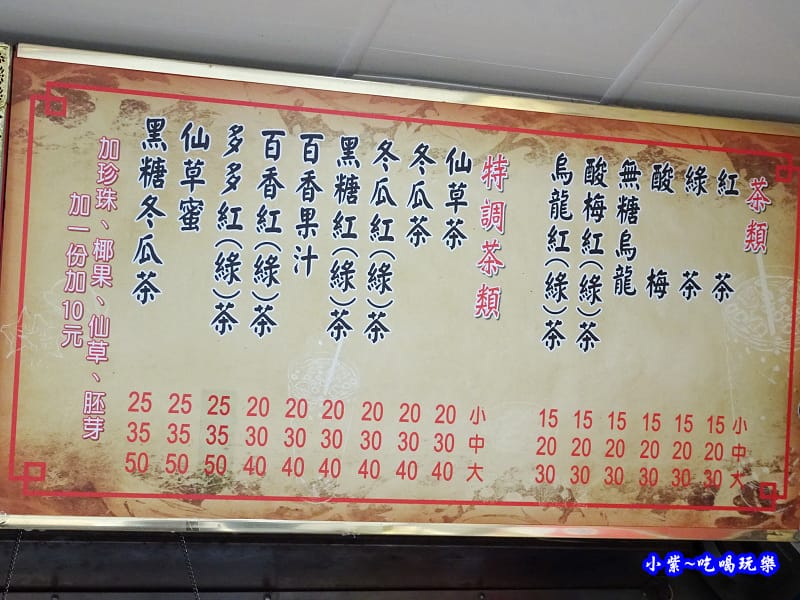 茶類
紅茶
綠茶
酸梅
無糖烏龍
酸梅紅(綠)茶
烏龍紅(綠)茶
小 15 15 15 15 15 15
中 20 20 20 20 20 20
大 30 30 30 30 30 30
特調茶類
仙草茶
冬瓜茶
冬瓜紅(綠)茶
黑糖紅(綠)茶
百香果汁
百香紅(綠)茶
多多紅(綠)茶
仙草蜜
黑糖冬瓜茶
小 20 20 20 20 20 20 25 25 25
中 30 30 30 30 30 30 35 35 35
大 40 40 40 40 40 40 50 50 50
加珍珠、椰果、仙草、胚芽
加一份加10元
小紫~吃喝玩樂